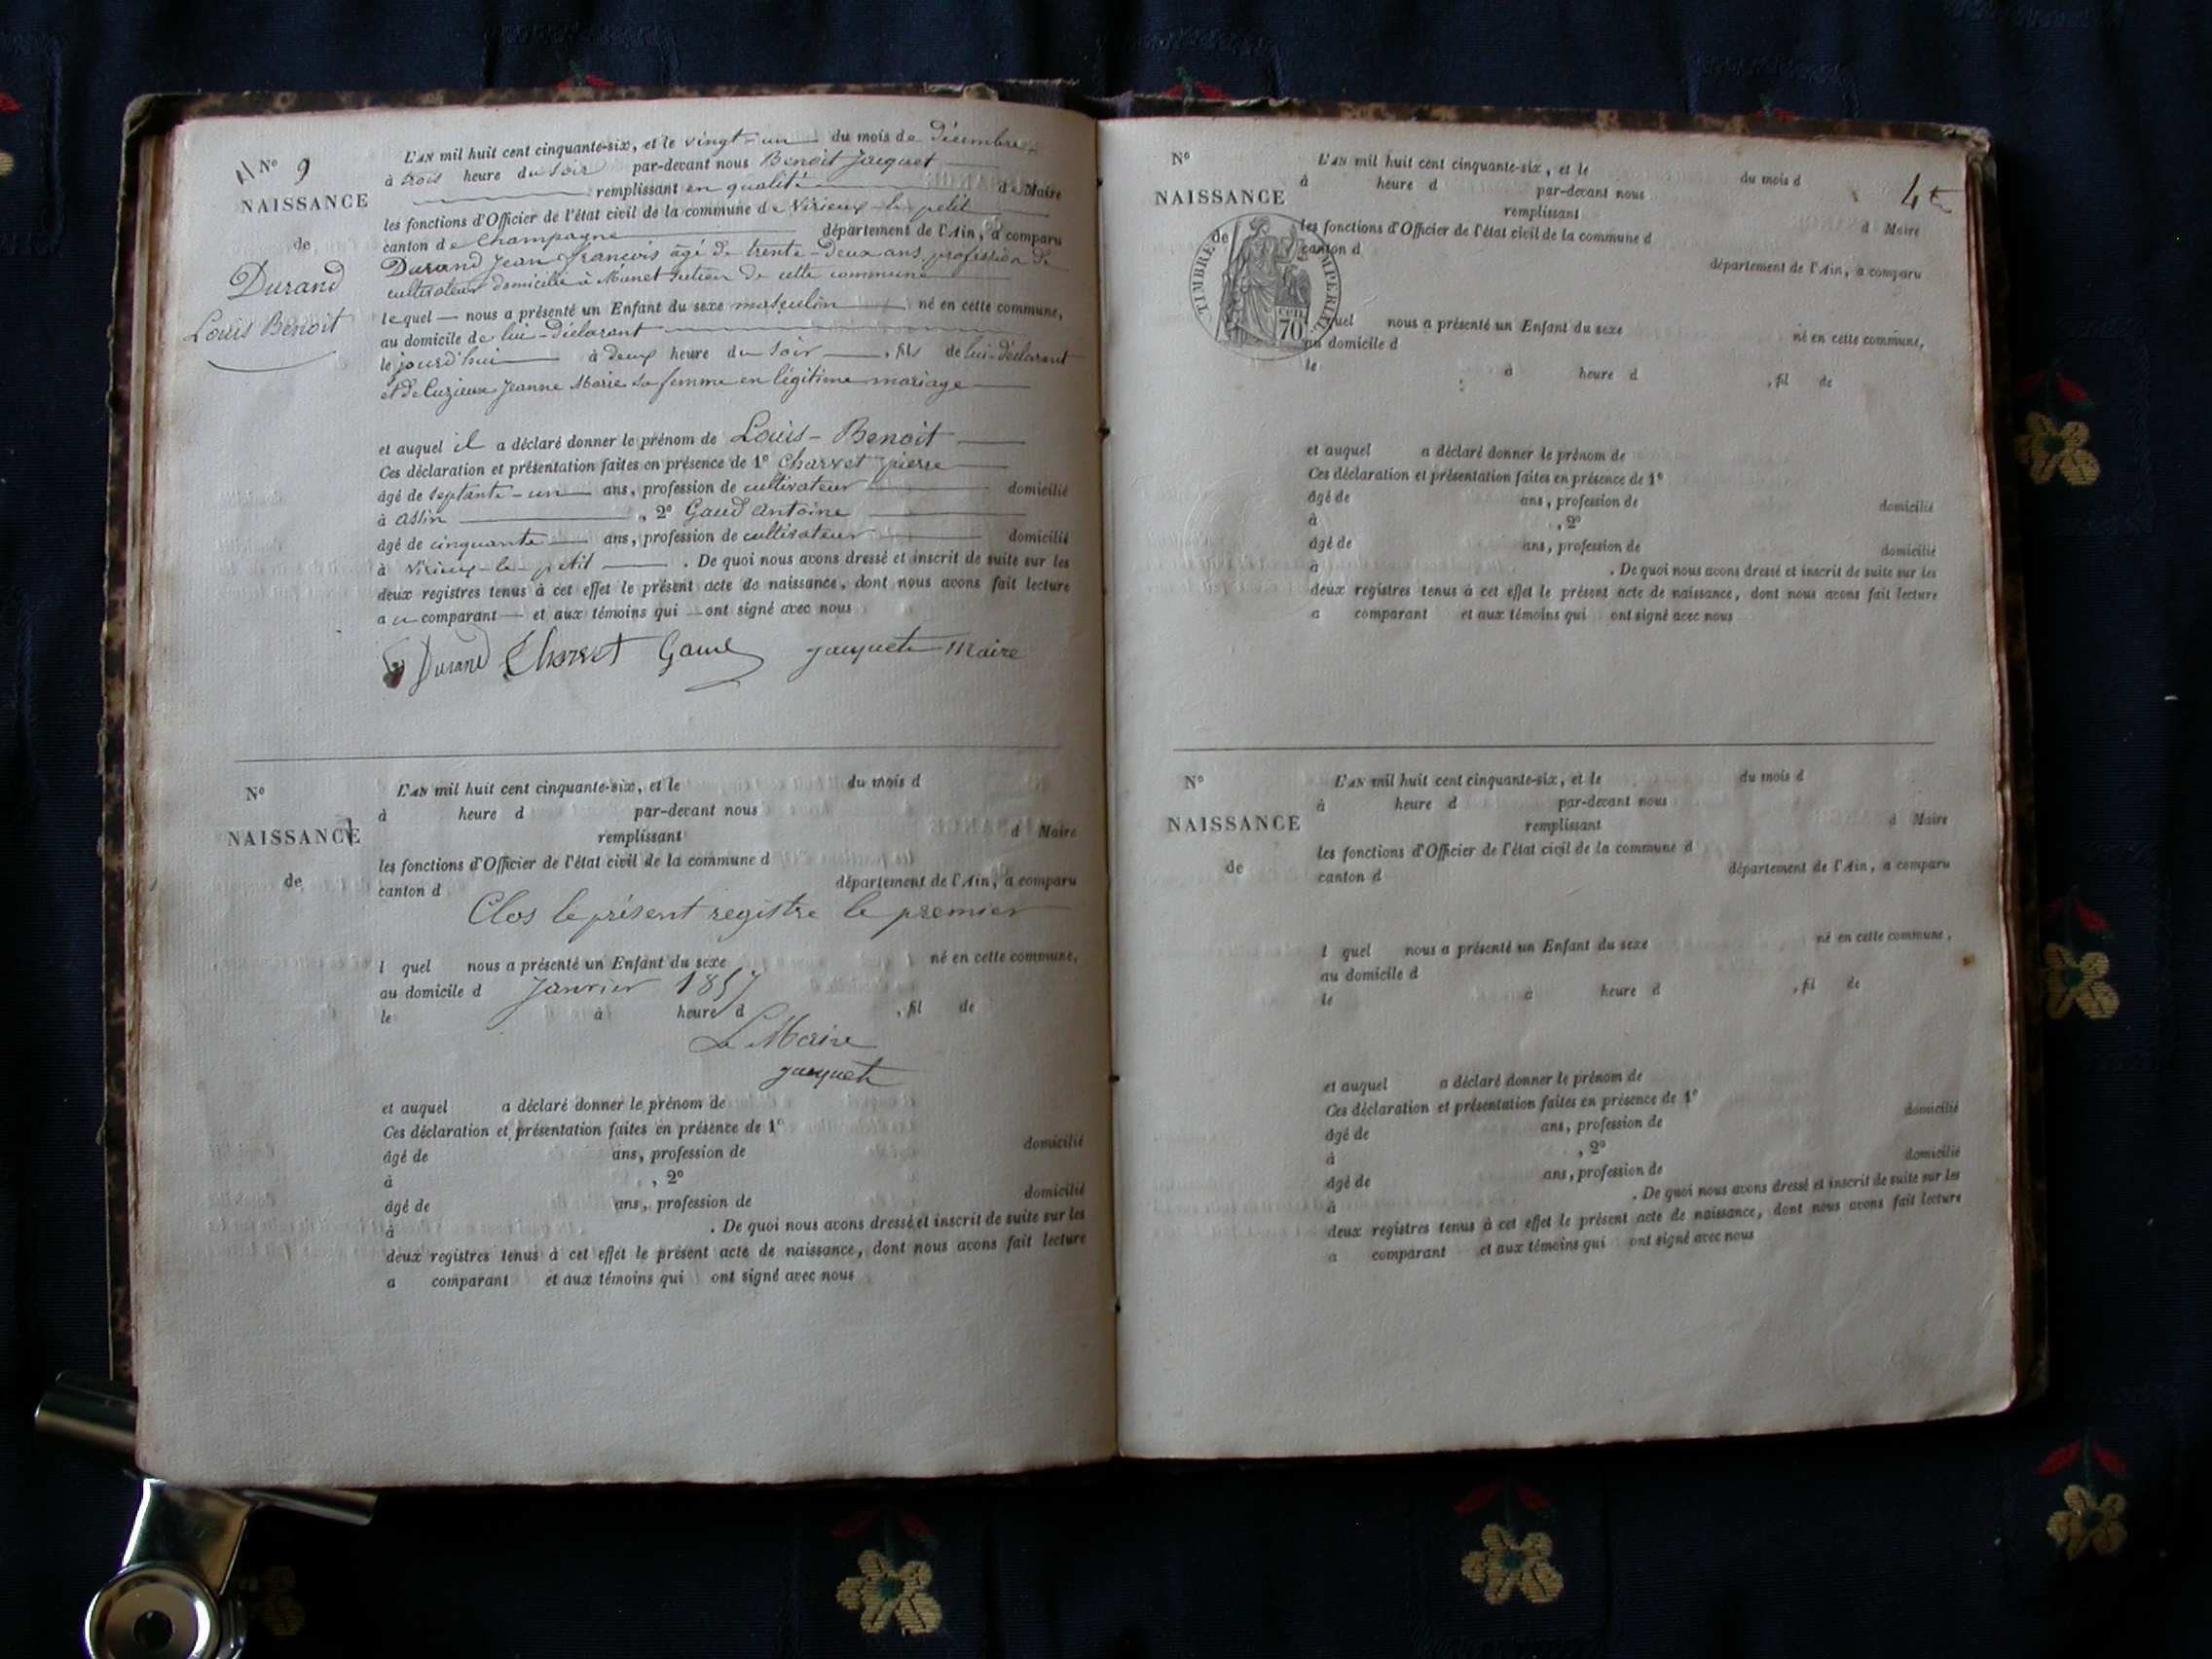 N° 9
NAISSANCE
de
Durand
Louis Benoit
L'AN mil huit cent cinquante-six, et le vingt-un du mois de Décembre
à trois heure du soir par-devant nous Benoit Jacquet
remplissant en qualité de Maire
les fonctions d'Officier de l'état civil de la commune de Virieux-le-petit
canton de Champagne département de l'Ain, a comparu
Durand Jean François âgé de trente-deux ans, profession de
cultivateur domicilié à Munet section de cette commune
lequel nous a présenté un Enfant du sexe masculin né en cette commune,
au domicile de lui-déclarant
le jourd'hui à deux heure du soir, fils de lui-déclarant
et de Cuzieux Jeanne Marie sa femme en légitime mariage
et auquel il a déclaré donner le prénom de Louis-Benoit
Ces déclaration et présentation faites en présence de 1° Charvet pierre
âgé de septante-un ans, profession de cultivateur domicilié
à assin, 2° Gaud Antoine
âgé de cinquante ans, profession de cultivateur domicilié
à Virieux-le-petit. De quoi nous avons dressé et inscrit de suite sur les
deux registres tenus à cet effet le présent acte de naissance, dont nous avons fait lecture
au comparant et aux témoins qui ont signé avec nous
Durand Charvet Gaud Jacquet Maire
N°
NAISSANCE
de
L'AN mil huit cent cinquante-six, et le du mois d
à heure d par-devant nous
remplissant d Maire
les fonctions d'Officier de l'état civil de la commune d
canton d département de l'Ain, a comparu
Clos le présent registre le premier
l quel nous a présenté un Enfant du sexe né en cette commune,
au domicile d Janvier 1857
le à heure d , fil de
Le Maire
Jacquet
et auquel a déclaré donner le prénom de
Ces déclaration et présentation faites en présence de 1°
âgé de ans, profession de domicilié
à , 2°
âgé de ans, profession de domicilié
à . De quoi nous avons dressé et inscrit de suite sur les
deux registres tenus à cet effet le présent acte de naissance, dont nous avons fait lecture
a comparant et aux témoins qui ont signé avec nous
N°
NAISSANCE
de
TIMBRE IMPERIAL
70 cen
L'AN mil huit cent cinquante-six, et le du mois d
à heure d par-devant nous
remplissant d Maire
les fonctions d'Officier de l'état civil de la commune d
canton d département de l'Ain, a comparu
quel nous a présenté un Enfant du sexe né en cette commune,
au domicile d
le à heure d , fil de
et auquel a déclaré donner le prénom de
Ces déclaration et présentation faites en présence de 1°
âgé de ans, profession de domicilié
à , 2°
âgé de ans, profession de domicilié
à . De quoi nous avons dressé et inscrit de suite sur les
deux registres tenus à cet effet le présent acte de naissance, dont nous avons fait lecture
a comparant et aux témoins qui ont signé avec nous
N°
NAISSANCE
de
L'AN mil huit cent cinquante-six, et le du mois d
à heure d par-devant nous
remplissant d Maire
les fonctions d'Officier de l'état civil de la commune d
canton d département de l'Ain, a comparu
l quel nous a présenté un Enfant du sexe né en cette commune,
au domicile d
le à heure d , fil de
et auquel a déclaré donner le prénom de
Ces déclaration et présentation faites en présence de 1°
âgé de ans, profession de domicilié
à , 2°
âgé de ans, profession de domicilié
à . De quoi nous avons dressé et inscrit de suite sur les
deux registres tenus à cet effet le présent acte de naissance, dont nous avons fait lecture
a comparant et aux témoins qui ont signé avec nous